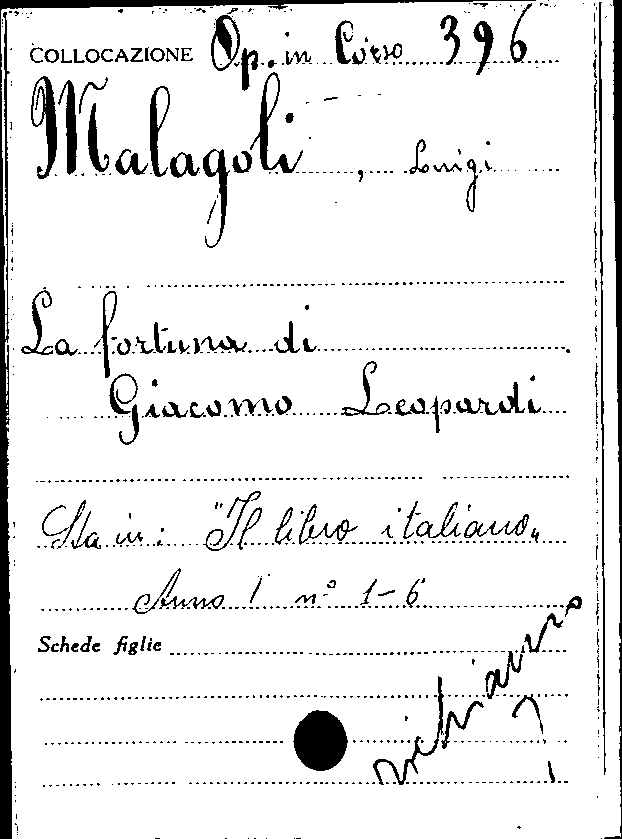 COLLOCAZIONE Op. in Corso 396
Malagoli, Luigi
La fortuna di
Giacomo Leopardi
Sta in: "Il libro italiano„
Anno I n° 1-6
Schede figlie
richiamo